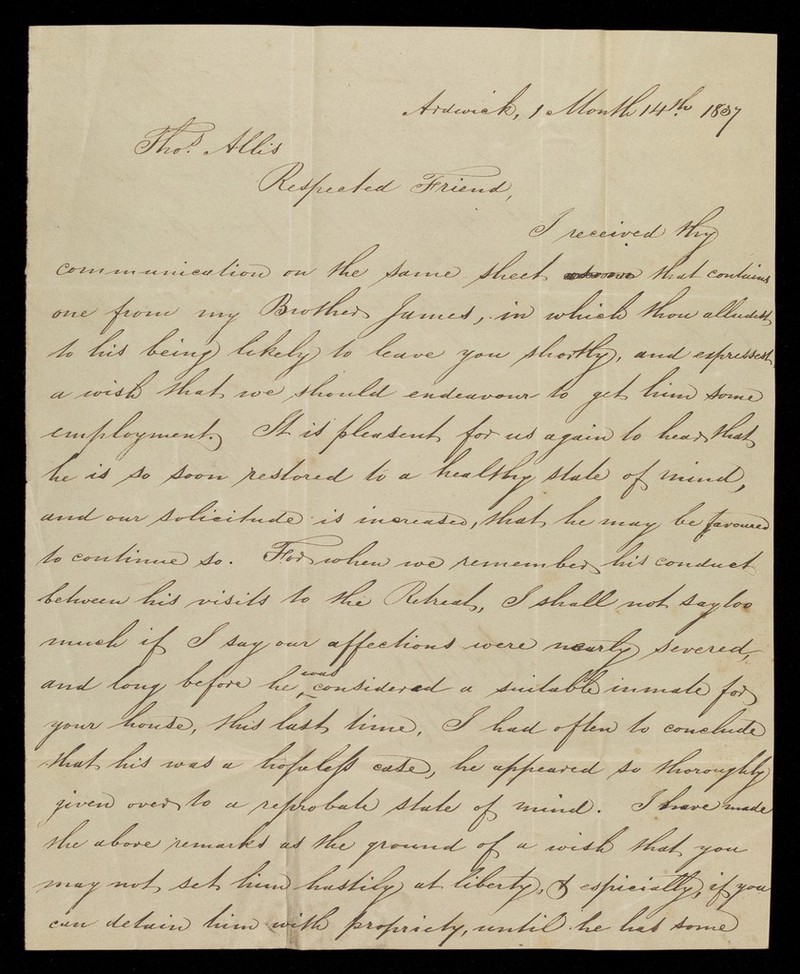 Ardwick, 1 Month 14th. 1837
Thos. Allis
Respected Friend,
I received thy
communication on the same sheet that contains
one from my Brother James, in which thou alludest
to his being likely to leave you shortly, and expressest
a wish that we should endeavour to get him some
employment. It is pleasent for us again to hear that
he is so soon restored to a healthy state of mind,
and our solicitude is increased, that he may be favoured
to continue so. For when we remember his conduct
between his visits to the Retreat, I shall not say too
much if I say our affections were nearly severed,
and long before he was considered a suitable inmate for
your house, this last time, I had often to conclude
that his was a hopeless case, he appeared so thoroughly
given over to a reprobate state of mind. I have made
the above remarks as the ground of a wish that you
may not set him hastily at liberty, & espicially, if you
can detain him with propriety, until he has some